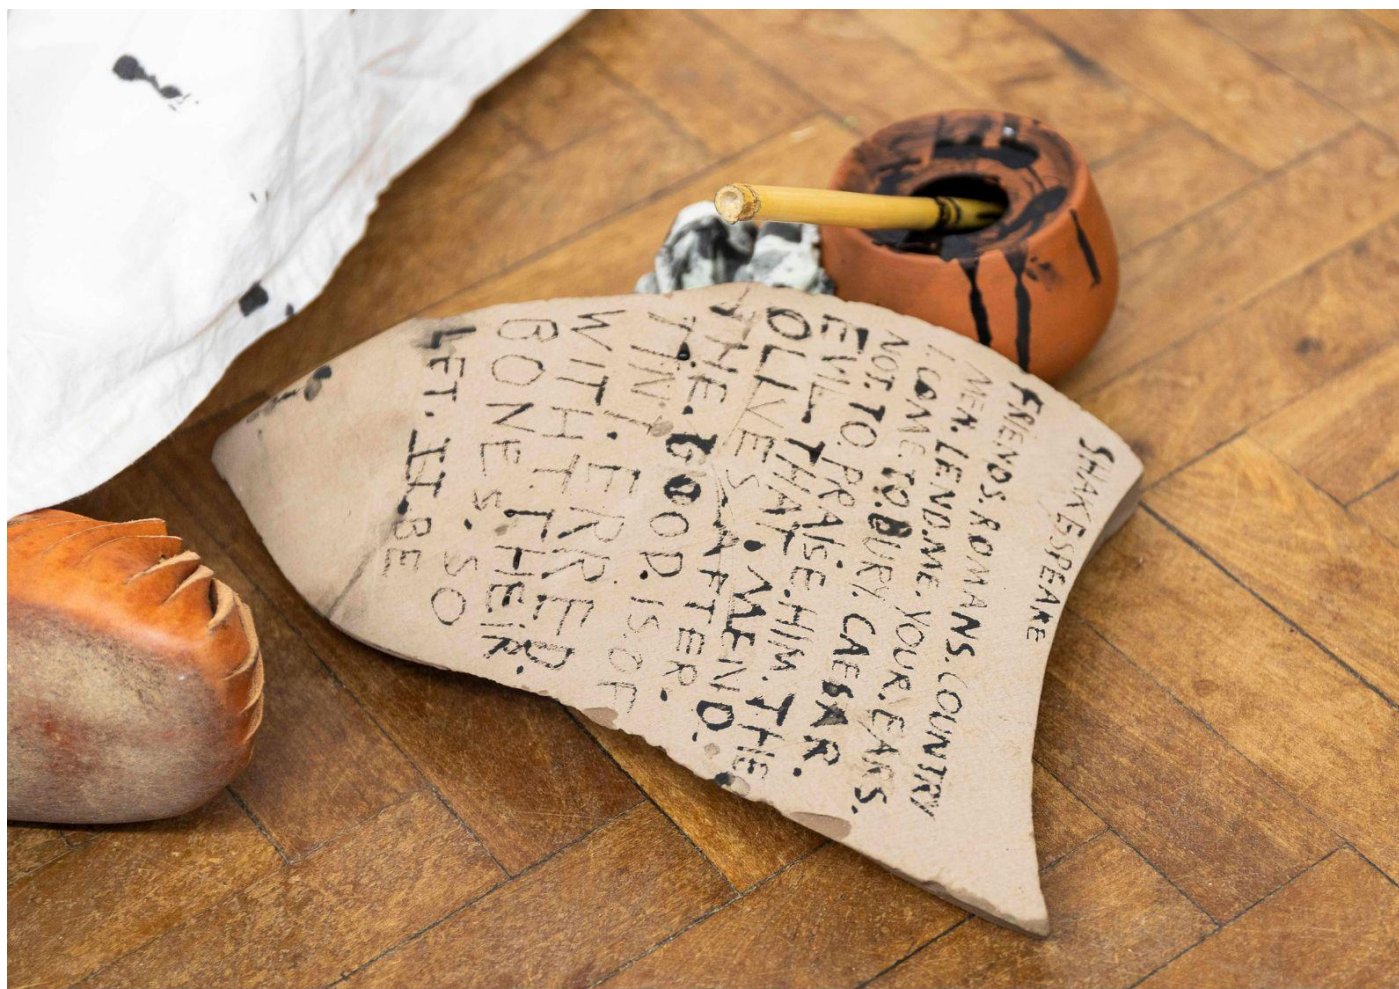 SHAKESPEARE
FRIENDS.ROMANS.COUNTRY
MEN.LEND.ME.YOUR.EARS.
I.COME.TO.BURY CAESAR.
NOT.TO.PRAISE.HIM.THE
EVIL.THAT.MEN.D.
OLIVES.AFTER.
THE.GOOD.IS.OF
TINT.ERRED
WITH.THEIR.
BONES.SO
LET.IT.BE